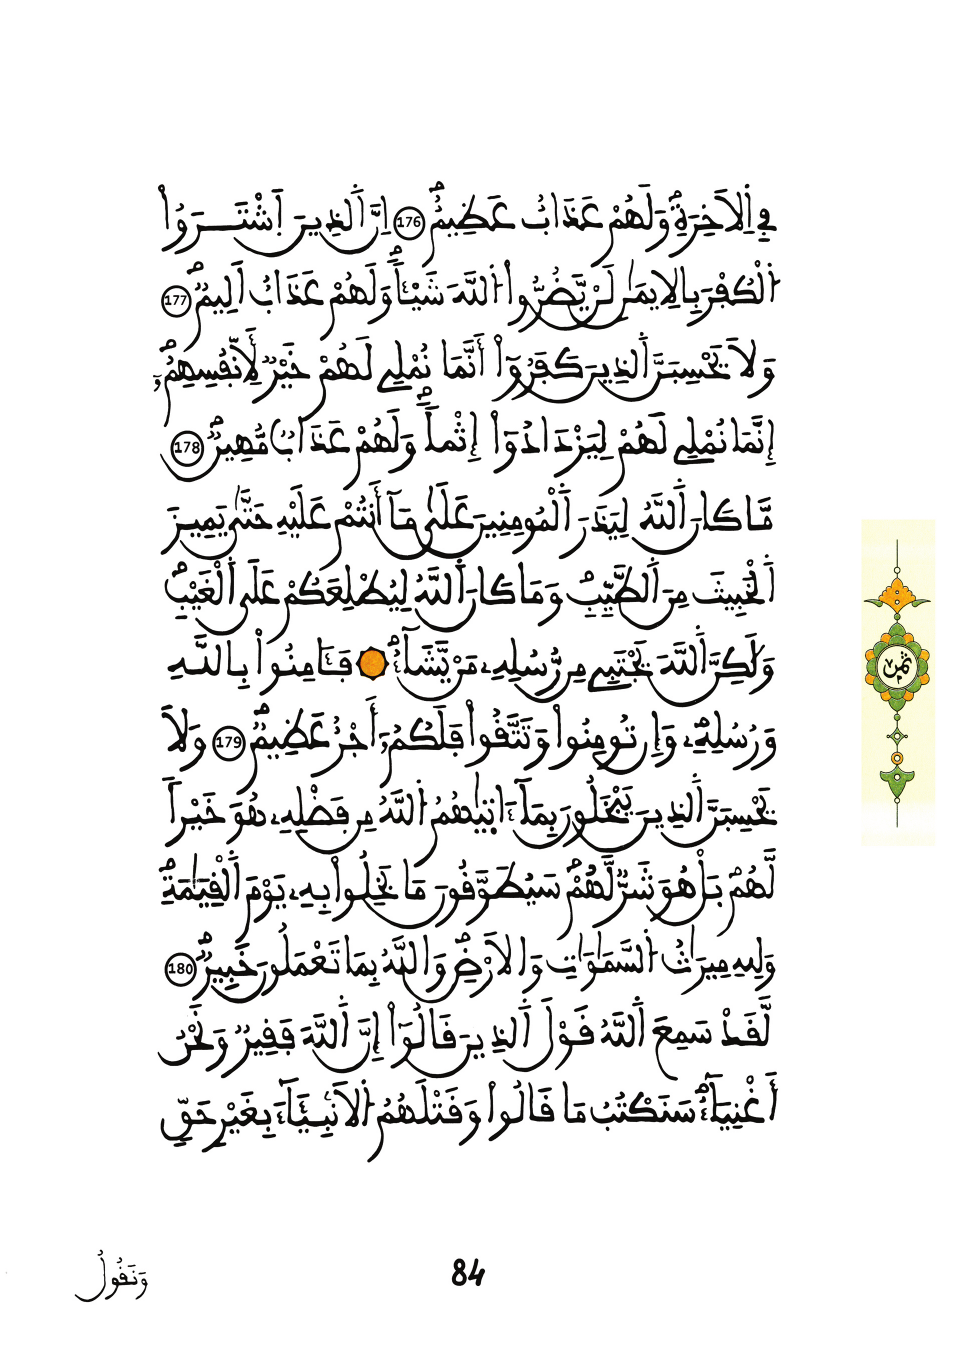 فِي اِ۬لَاخِرَةِۖ وَلَهُمْ عَذَابٌ عَظِيمٌۖ 176 اِنَّ اَ۬لذِينَ اَ۪شْتَرَوُاْ
اُ۬لْكُفْرَ بِالِايمَٰنِ لَنْ يَّضُرُّواْ اُ۬للَّهَ شَيْـٔاٗۖ وَلَهُمْ عَذَابٌ اَلِيمٞۖ 177
وَلَا يَحْسِبَنَّ اَ۬لذِينَ كَفَرُوٓاْ أَنَّمَا نُمْلِے لَهُمْ خَيْرٞ لِّأَنفُسِهِمُۥٓۖ
إِنَّمَا نُمْلِے لَهُمْ لِيَزْدَادُوٓاْ إِثْماٗۖ وَلَهُمْ عَذَابٞ مُّهِينٞۖ 178
مَّا كَانَ اَ۬للَّهُ لِيَذَرَ اَ۬لْمُومِنِينَ عَلَىٰ مَآ أَنتُمْ عَلَيْهِ حَتَّىٰ يَمِيزَ
اَ۬لْخَبِيثَ مِنَ اَ۬لطَّيِّبِۖ وَمَا كَانَ اَ۬للَّهُ لِيُطْلِعَكُمْ عَلَى اَ۬لْغَيْبِۖ
وَلَٰكِنَّ اَ۬للَّهَ يَجْتَبِے مِن رُّسُلِهِۦ مَنْ يَّشَآءُۖ فَـَٔامِنُواْ بِاللَّهِ
وَرُسُلِهِۦۖ وَإِن تُومِنُواْ وَتَتَّقُواْ فَلَكُمُۥٓ أَجْرٌ عَظِيمٞۖ 179 وَلَا
يَحْسِبَنَّ اَ۬لذِينَ يَبْخَلُونَ بِمَآ ءَات۪يٰهُمُ اُ۬للَّهُ مِن فَضْلِهِۦ هُوَ خَيْراٗ
لَّهُمۖ بَلْ هُوَ شَرّٞ لَّهُمْۖ سَيُطَوَّقُونَ مَا بَخِلُواْ بِهِۦ يَوْمَ اَ۬لْقِيَٰمَةِۖ
وَلِلهِ مِيرَٰثُ اُ۬لسَّمَٰوَٰتِ وَالَارْضِۖ وَاللَّهُ بِمَا تَعْمَلُونَ خَبِيرٞۖ 180
لَّقَدْ سَمِعَ اَ۬للَّهُ قَوْلَ اَ۬لذِينَ قَالُوٓاْ إِنَّ اَ۬للَّهَ فَقِيرٞ وَنَحْنُ
أَغْنِيَآءُۖ سَنَكْتُبُ مَا قَالُواْ وَقَتْلَهُمُ اُ۬لَانۢبِـئَآءَ بِغَيْرِ حَقّٖ
ثمن
وَنَقُولُ
84